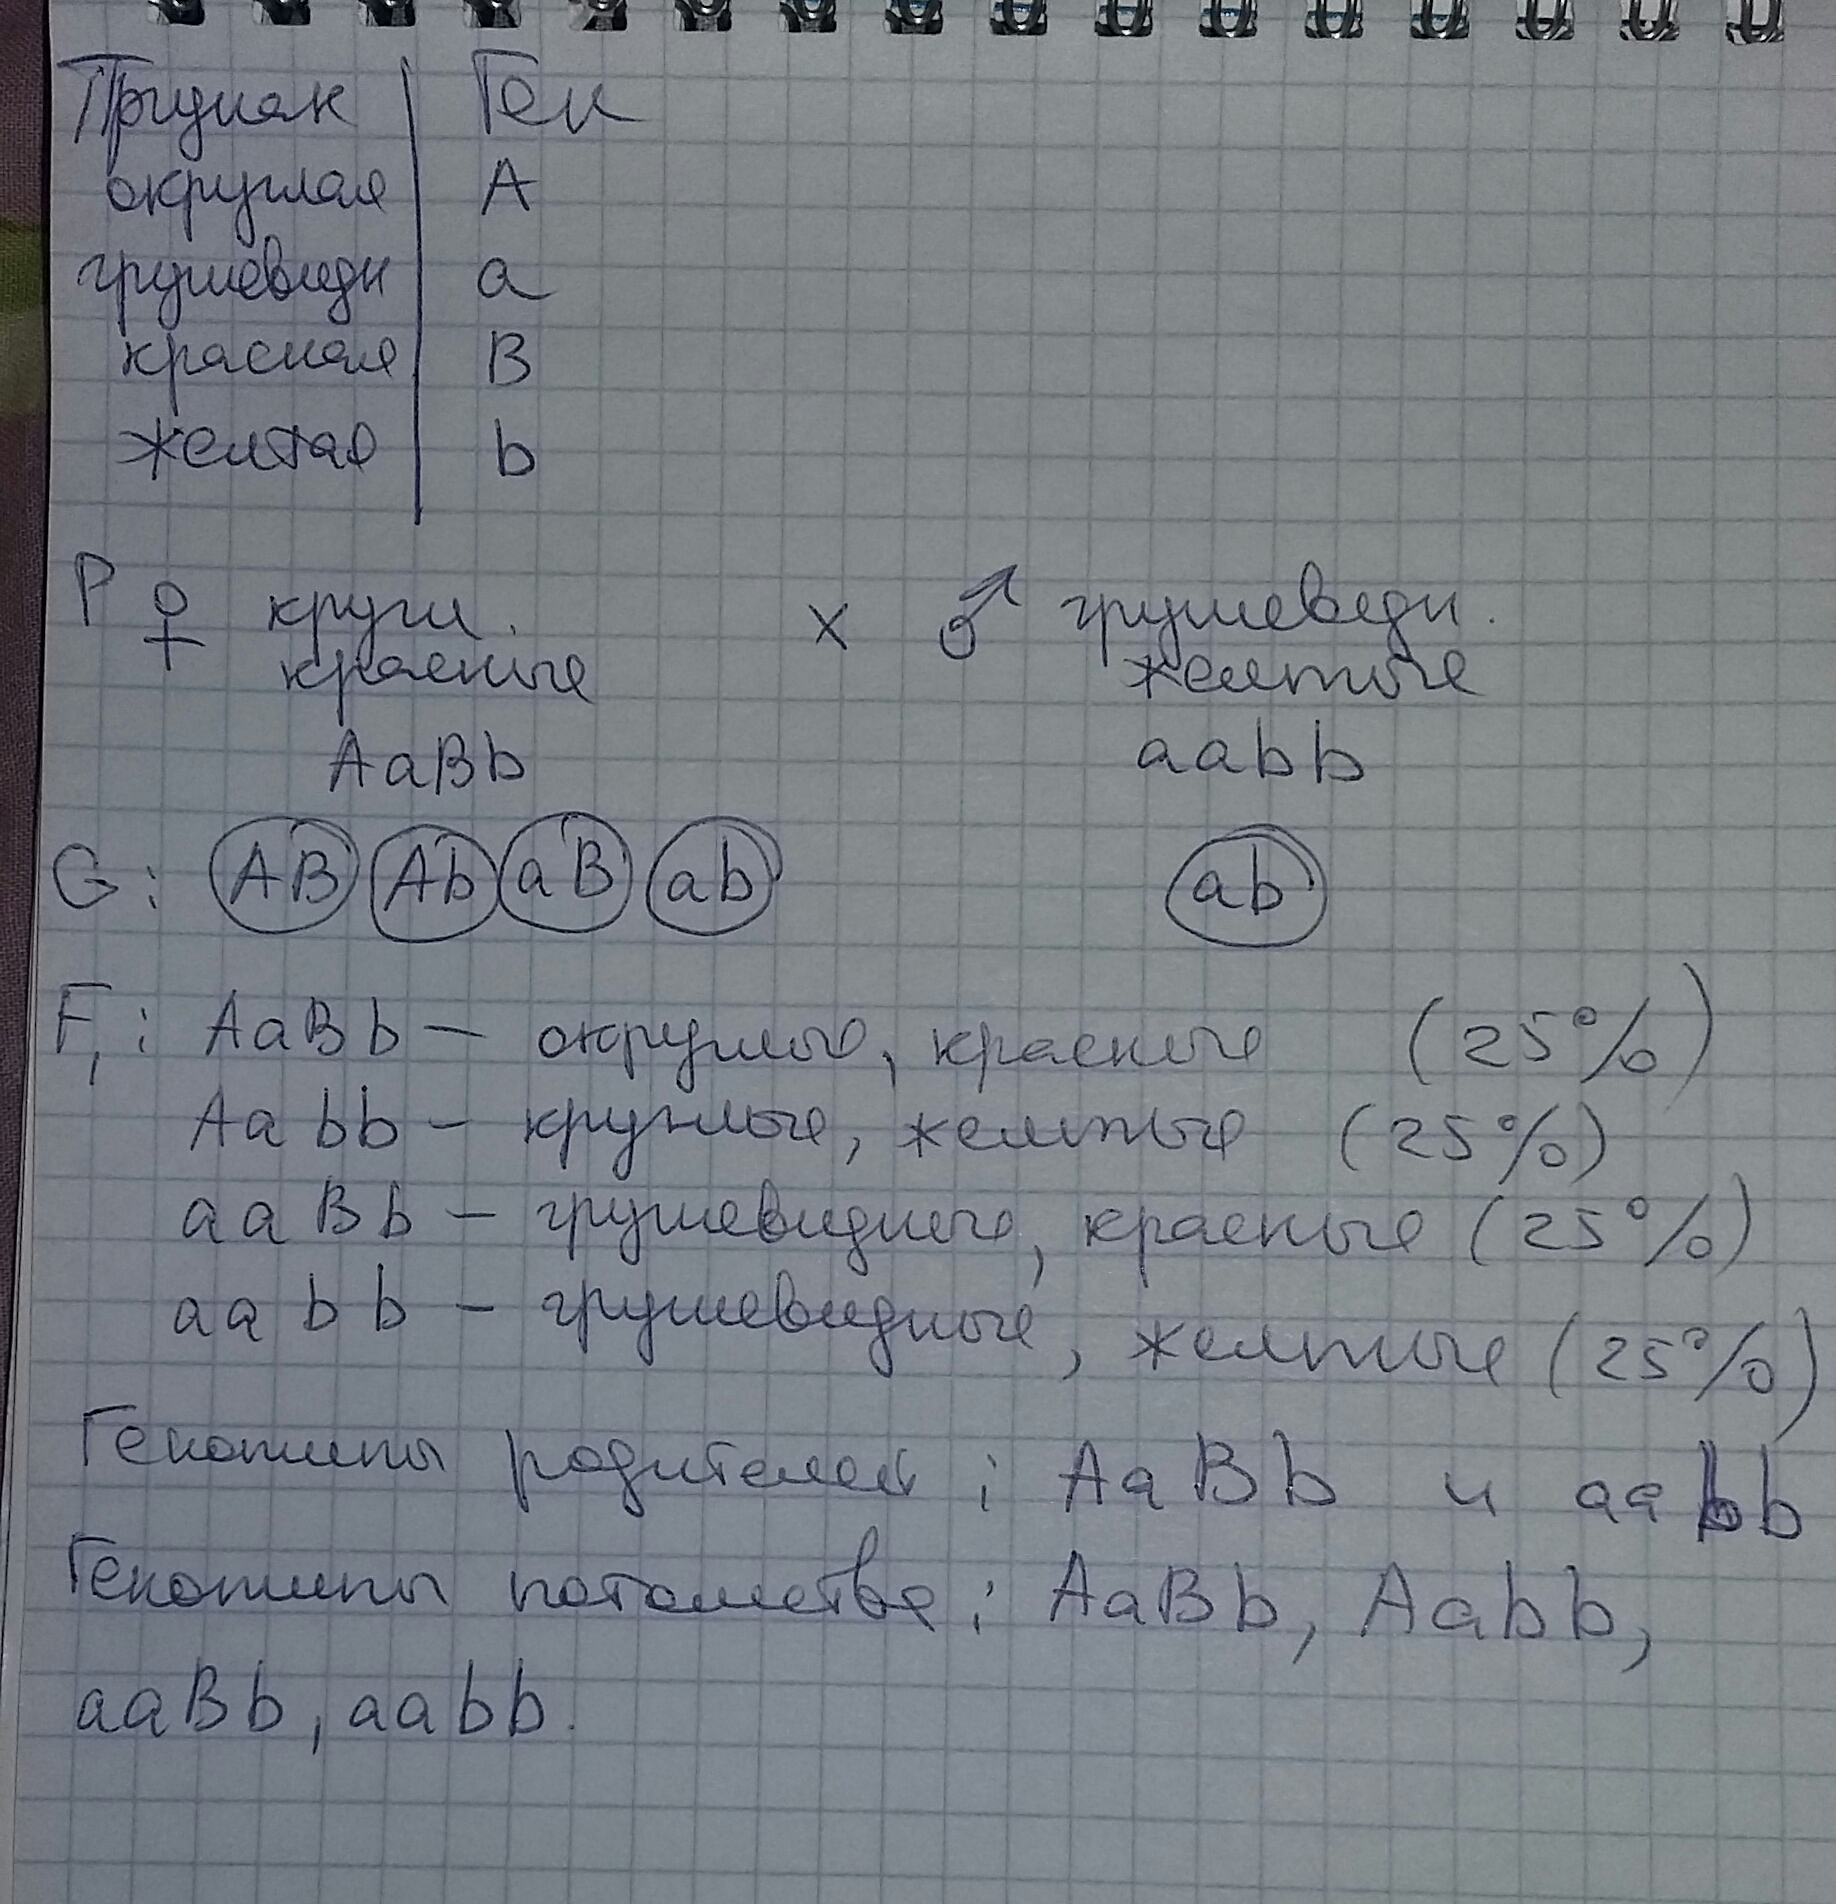 Признак Ген
округлая A
грушевидн a
красная B
желтая b
P ♀ кругл. x ♂ грушевидн.
красные желтые
AaBb aabb
G: AB Ab aB ab ab
F1: AaBb – округлые, красные (25%)
Aabb – круглые, желтые (25%)
aaBb – грушевидные, красные (25%)
aabb – грушевидные, желтые (25%)
Генотипы родителей: AaBb и aabb
Генотипы потомства: AaBb, Aabb,
aaBb, aabb.